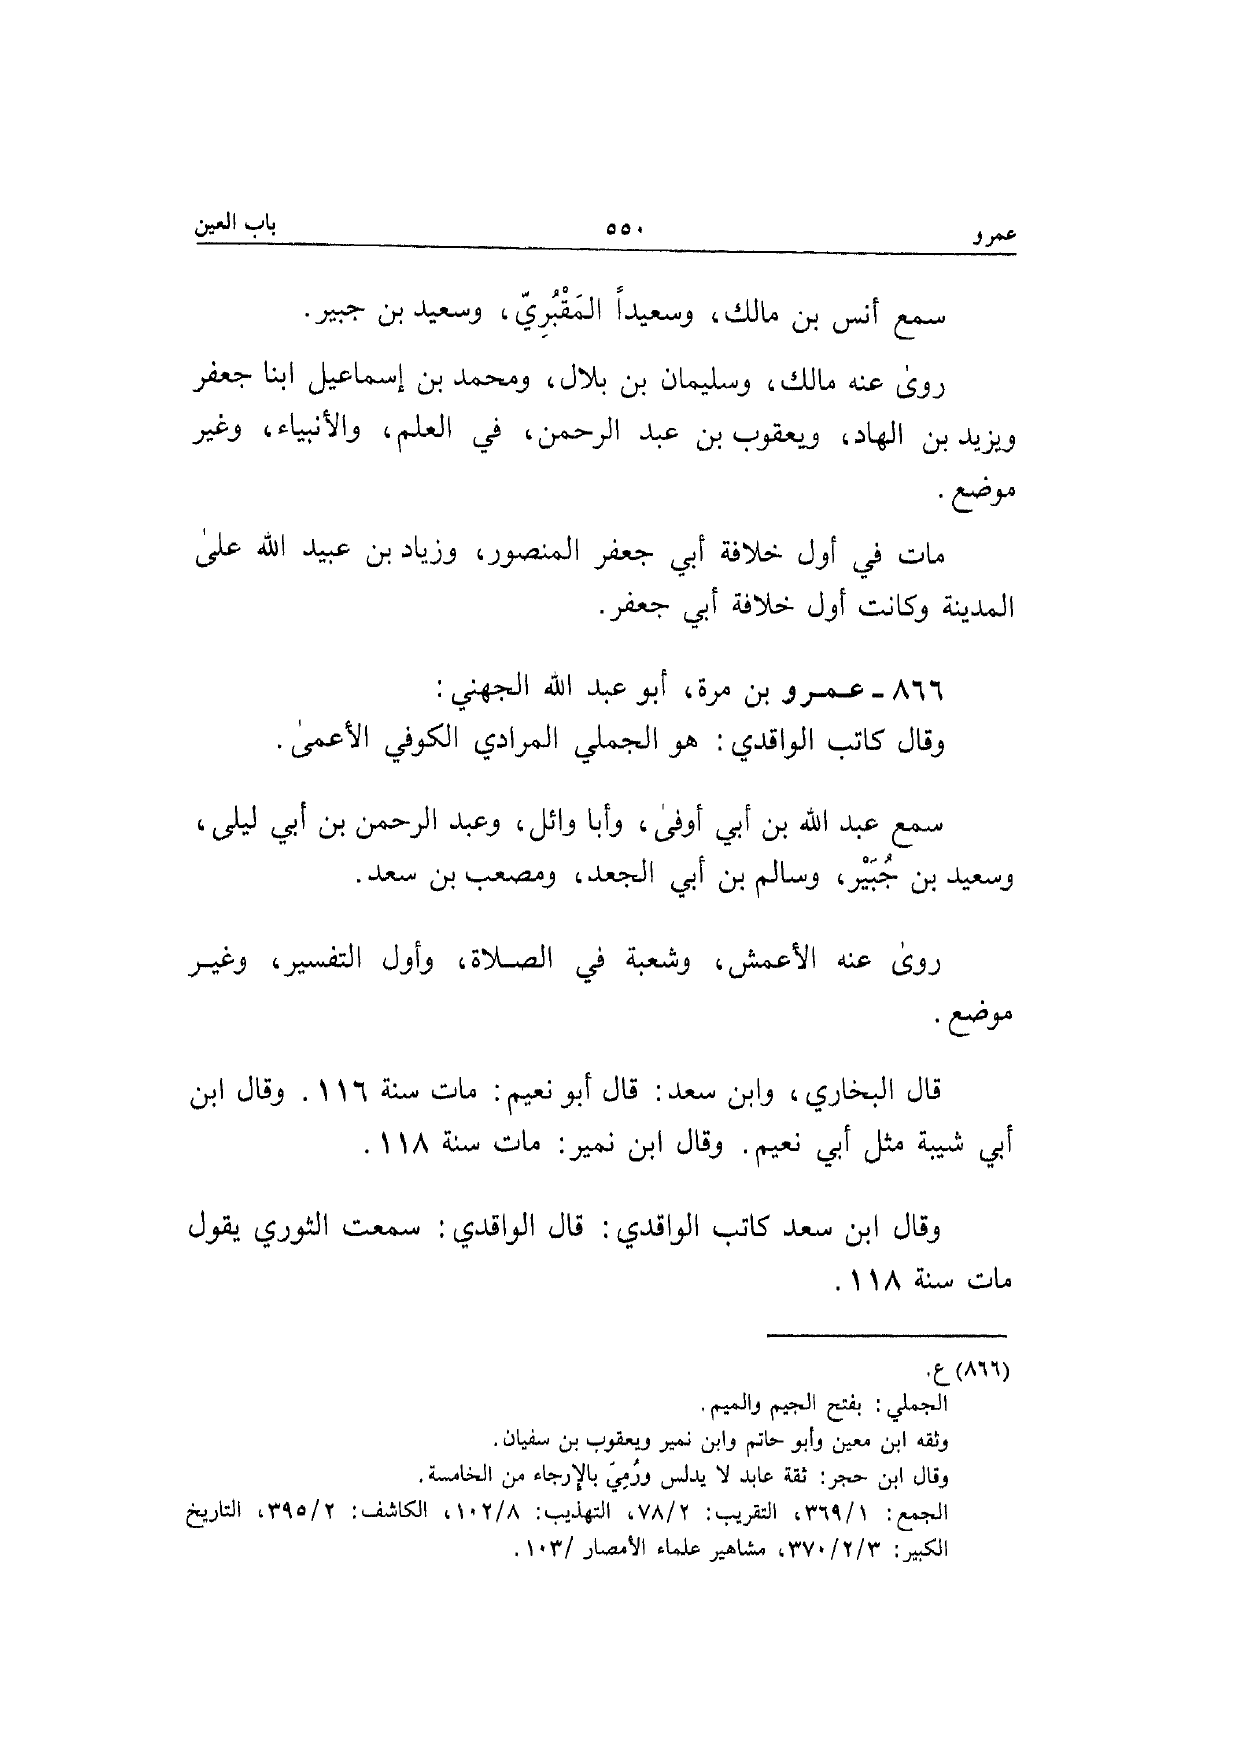 عمرو ٥٥٠ باب العين
سمع أنس بن مالك، وسعيداً المَقْبُرِيّ، وسعيد بن جبير.
روىٰ عنه مالك، وسليمان بن بلال، ومحمد بن إسماعيل ابنا جعفر
ويزيد بن الهاد، ويعقوب بن عبد الرحمن، في العلم، والأنبياء، وغير
موضع.
مات في أول خلافة أبي جعفر المنصور، وزياد بن عبيد الله علىٰ
المدينة وكانت أول خلافة أبي جعفر.
٨٦٦ - عمرو بن مرة، أبو عبد الله الجهني:
وقال كاتب الواقدي: هو الجملي المرادي الكوفي الأعمىٰ.
سمع عبد الله بن أبي أوفىٰ، وأبا وائل، وعبد الرحمن بن أبي ليلى،
وسعيد بن جُبَيْر، وسالم بن أبي الجعد، ومصعب بن سعد.
روىٰ عنه الأعمش، وشعبة في الصلاة، وأول التفسير، وغير
موضع.
قال البخاري، وابن سعد: قال أبو نعيم: مات سنة ١١٦. وقال ابن
أبي شيبة مثل أبي نعيم. وقال ابن نمير: مات سنة ١١٨.
وقال ابن سعد كاتب الواقدي: قال الواقدي: سمعت الثوري يقول
مات سنة ١١٨.
(٨٦٦) ع.
الجملي: بفتح الجيم والميم.
وثقه ابن معين وأبو حاتم وابن نمير ويعقوب بن سفيان.
وقال ابن حجر: ثقة عابد لا يدلس ورُمِيَ بالإرجاء من الخامسة.
الجمع: ٣٦٩/١، التقريب: ٧٨/٢، التهذيب: ١٠٢/٨، الكاشف: ٣٩٥/٢، التاريخ
الكبير: ٣٧٠/٢/٣، مشاهير علماء الأمصار /١٠٣.